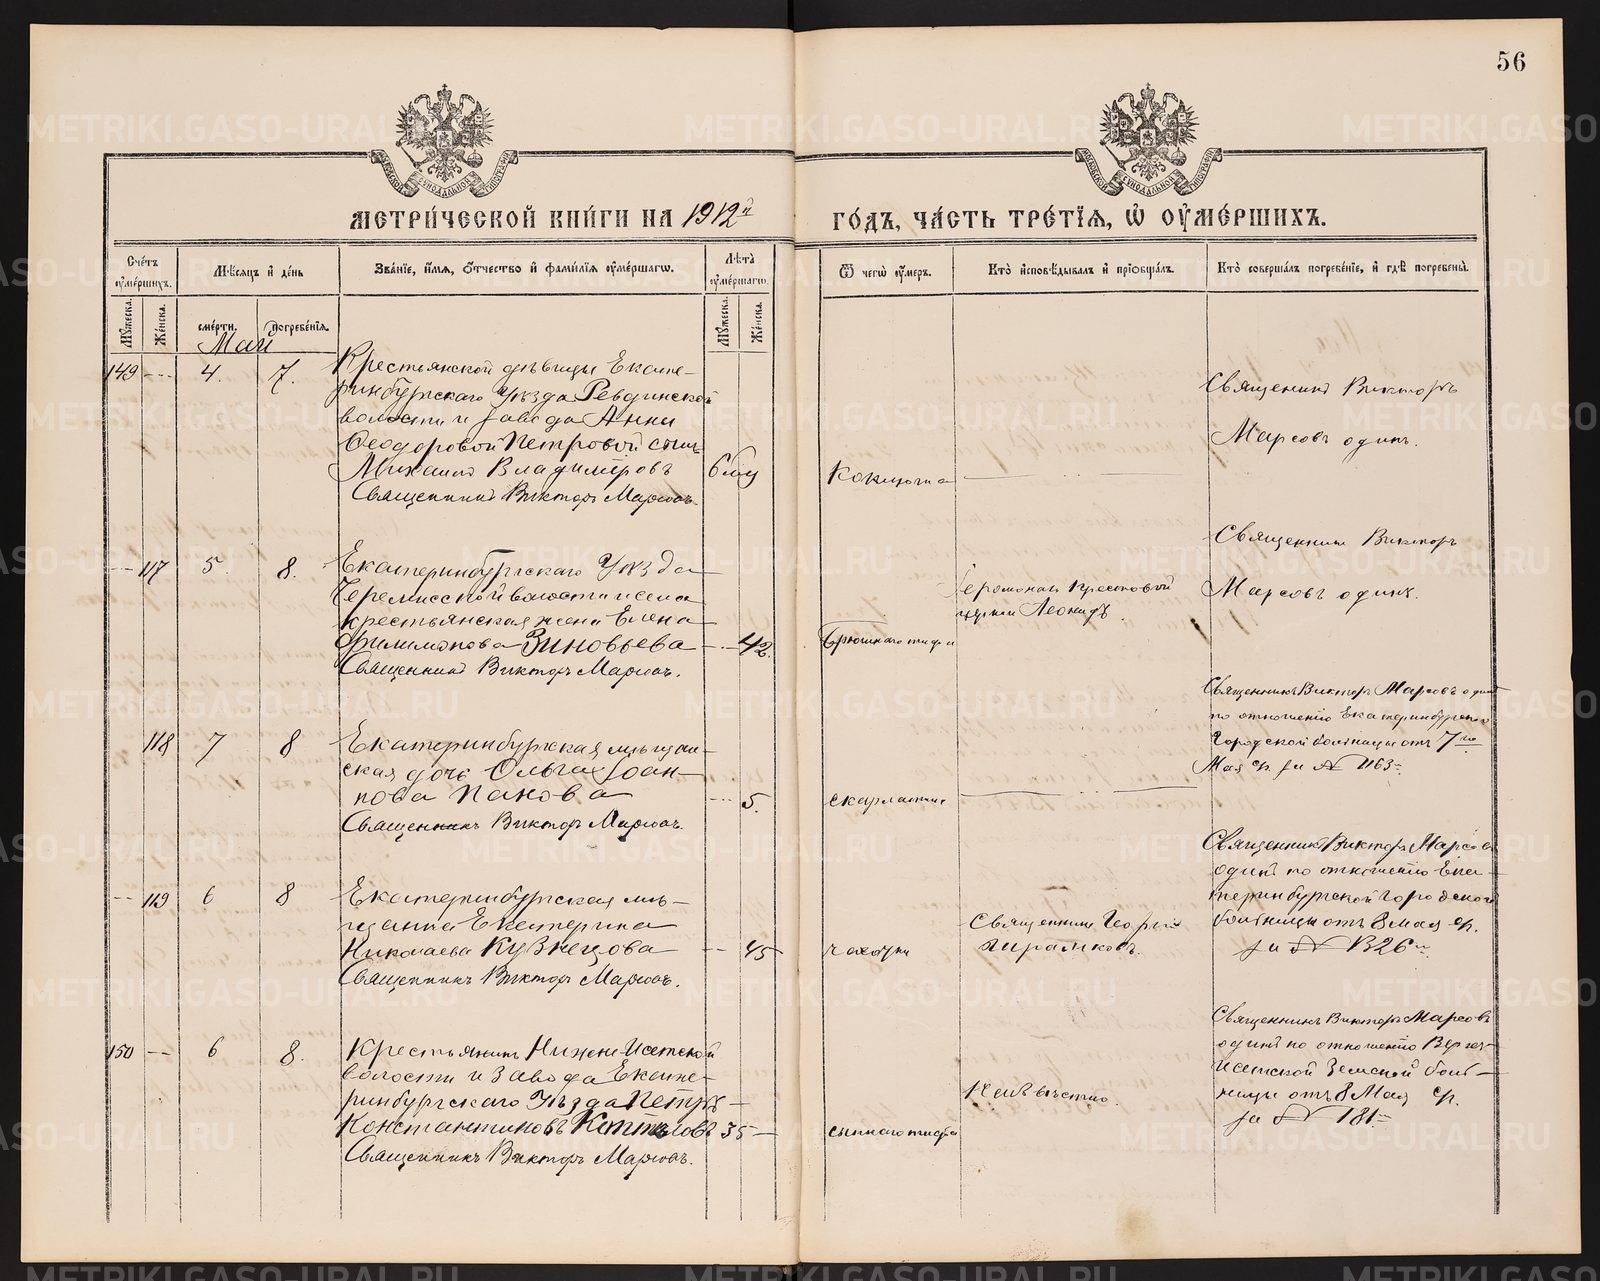 56
МОСКОВСКОЙ СѴНОДАЛЬНОЙ ТИПОГРАФІИ
МОСКОВСКОЙ СѴНОДАЛЬНОЙ ТИПОГРАФІИ
МЕТРИ́ЧЕСКОЙ КНИ́ГИ НА 1912й ГО́ДЪ, ЧА́СТЬ ТРЕ́ТІѦ, Ѡ҆ ОУ҆МЕ́РШИХЪ.
Сче́тъ оу҆ме́ршихъ.
Мѣ́сяцъ и҆ де́нь
Зва́ніе, и҆́мя, ѻ҆́тчество и҆ фами́лія оу҆ме́ршагѡ.
Лѣ́та оу҆ме́ршагѡ.
Ѿ чегѡ̀ оу҆́меръ.
Кто̀ и҆сповѣ́дывалъ и҆ пріѡбща́лъ.
Кто̀ соверша́лъ погребе́ніе, и҆ гдѣ̀ погребены̀.
Мꙋ́жеска.
Же́нска.
сме́рти.
погребе́нія.
Мꙋ́жеска.
Же́нска.
Май
149 --- 4. 7.
Крестьянской дѣвицы Екате-
ринбургскаго уѣзда Ревдинской
волости и завода Анны
Ѳеодоровой Петровой сынъ
Михаилъ Владиміровъ
6 мц
Священникъ Викторъ Марсовъ.
коклюша
Священникъ Викторъ
Марсовъ одинъ.
--- 117 5. 8.
Екатеринбургскаго Уѣзда
Черемисской волости и села
крестьянская жена Елена
Филимонова Зиновьева --- 42.
Священникъ Викторъ Марсовъ.
Брюшнаго тифа
Іеромонахъ Крестовой
церкви Леонидъ.
Священникъ Викторъ
Марсовъ одинъ.
118 7 8
Екатеринбургская мѣщан-
ская дочь Ольга Іоан-
нова Панова --- 5.
Священникъ Викторъ Марсовъ.
скарлатины
Священникъ Викторъ Марсовъ одинъ
по отношенію Екатеринбургской
Городской больницы отъ 7го
Мая с.г. за № 1163=
--- 119 6 8
Екатеринбургская мѣ-
щанка Екатерина
Николаева Кузнецова -- 45
Священникъ Викторъ Марсовъ.
чахотки
Священникъ Георгій
Священникъ Викторъ Марсовъ
одинъ по отношенію Ека-
теринбургской Городской
больницы отъ 8 мая с.г.
за №
150 -- 6 8.
Крестьянинъ Нижне-Исетской
волости и Завода Екате-
ринбургскаго Уѣзда Петръ
Константиновъ 35 -
Священникъ Викторъ Марсовъ.
сыпного тифа
Неизвѣстно.
Священникъ Викторъ Марсовъ
одинъ по отношенію Верхъ-
Исетской Земской боль-
ницы отъ 8 Мая с.г.
за № 181=
METRIKI.GASO-URAL.RU